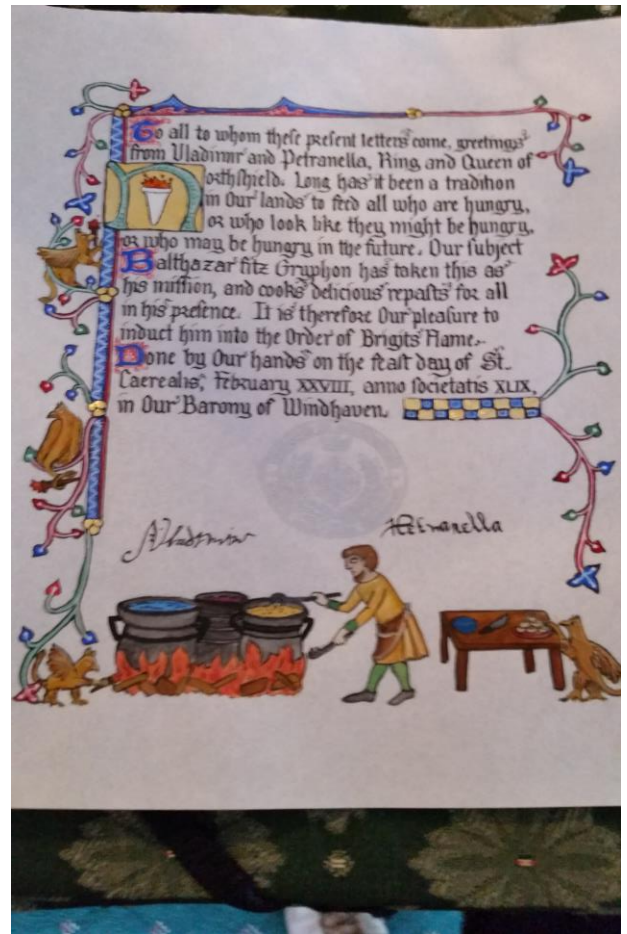 To all to whom these present letters come, greetings
from Vladimir and Petranella, King and Queen of
Northshield. Long has it been a tradition
in Our lands to feed all who are hungry,
or who look like they might be hungry,
or who may be hungry in the future. Our subject
Balthazar fitz Gryphon has taken this as
his mission, and cooks delicious repasts for all
in his presence. It is therefore Our pleasure to
induct him into the Order of Brigits Flame.
Done by Our hands on the feast day of St.
Caerealis, February XXVIII, anno societatis XLIX,
in Our Barony of Windhaven.
Vladimir
Petranella